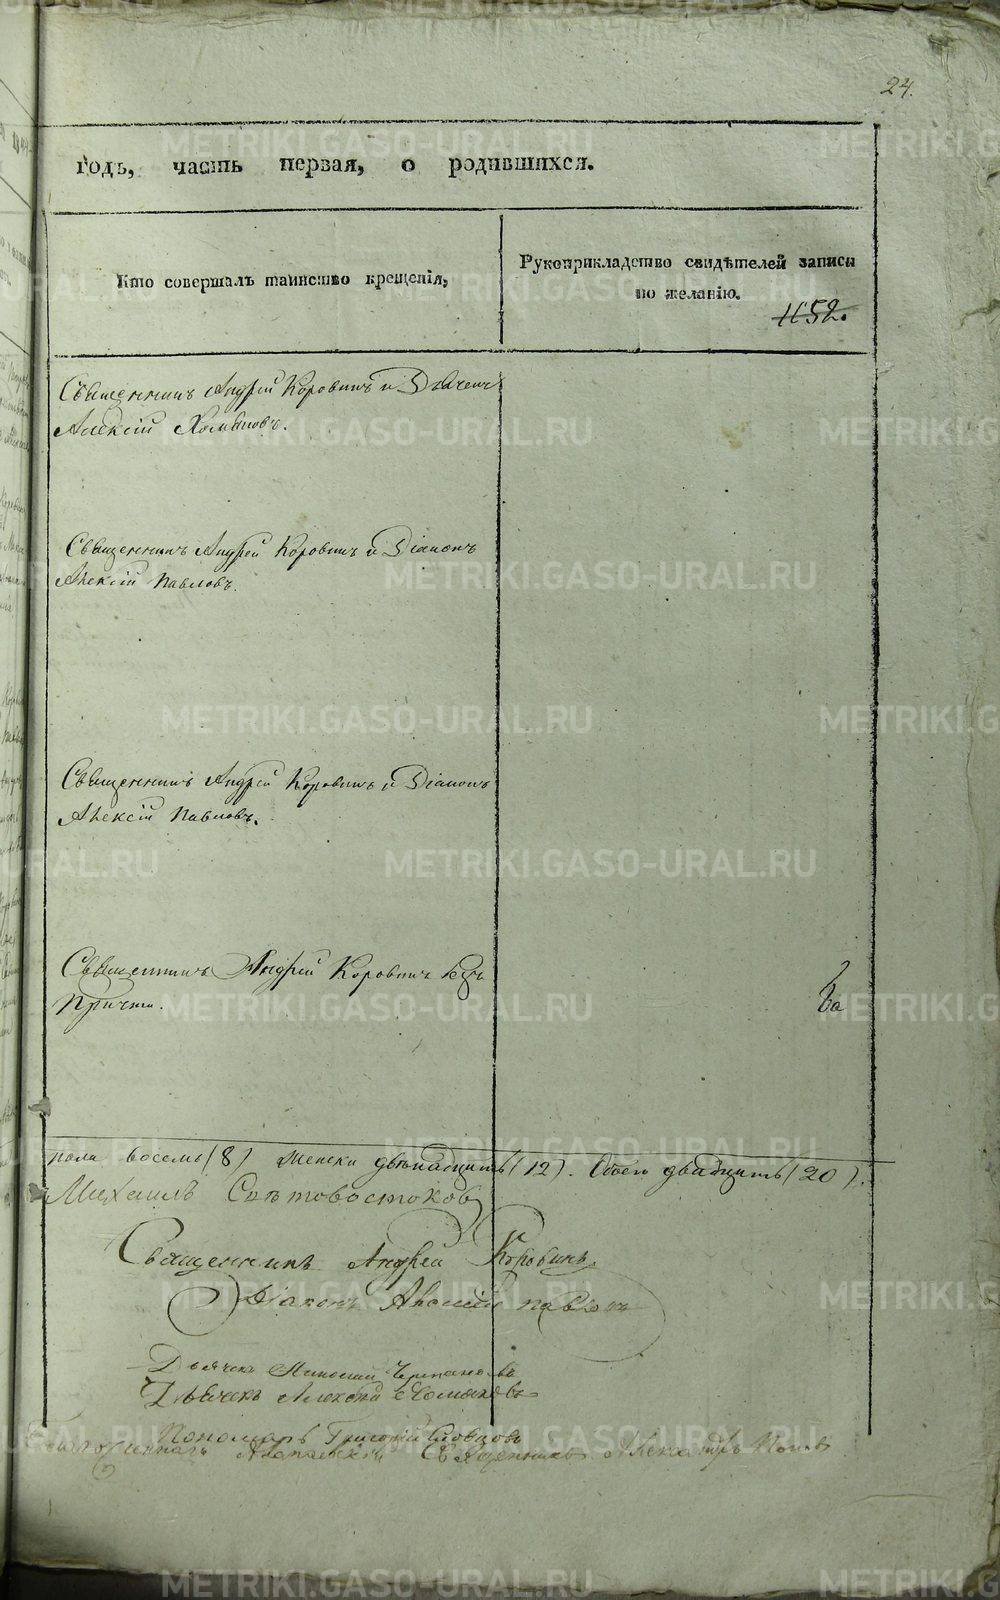 24.
годъ, часть первая, о родившихся.
Кто совершалъ таинство крещенія,
Рукоприкладство свидѣтелей записи
по желанію.
1152.
Священникъ Андрей Коровинъ и Дьячекъ
Алексій Хомяковъ.
Священникъ Андрей Коровинъ и Діаконъ
Алексій Павловъ.
Священникъ Андрей Коровинъ и Діаконъ
Алексій Павловъ.
Священникъ Андрей Коровинъ безъ
Причта.
пола восемь (8) женска двенадцать (12). Обоего двадцать (20).
Михаилъ
Священникъ Андрей Коровинъ
Діаконъ Алексій Павловъ
Дьячекъ
Дьячекъ Алексей Хомяковъ
Пономарь Григорій
Благочинный Священникъ Александръ Поповъ
METRIKI.GASO-URAL.RU